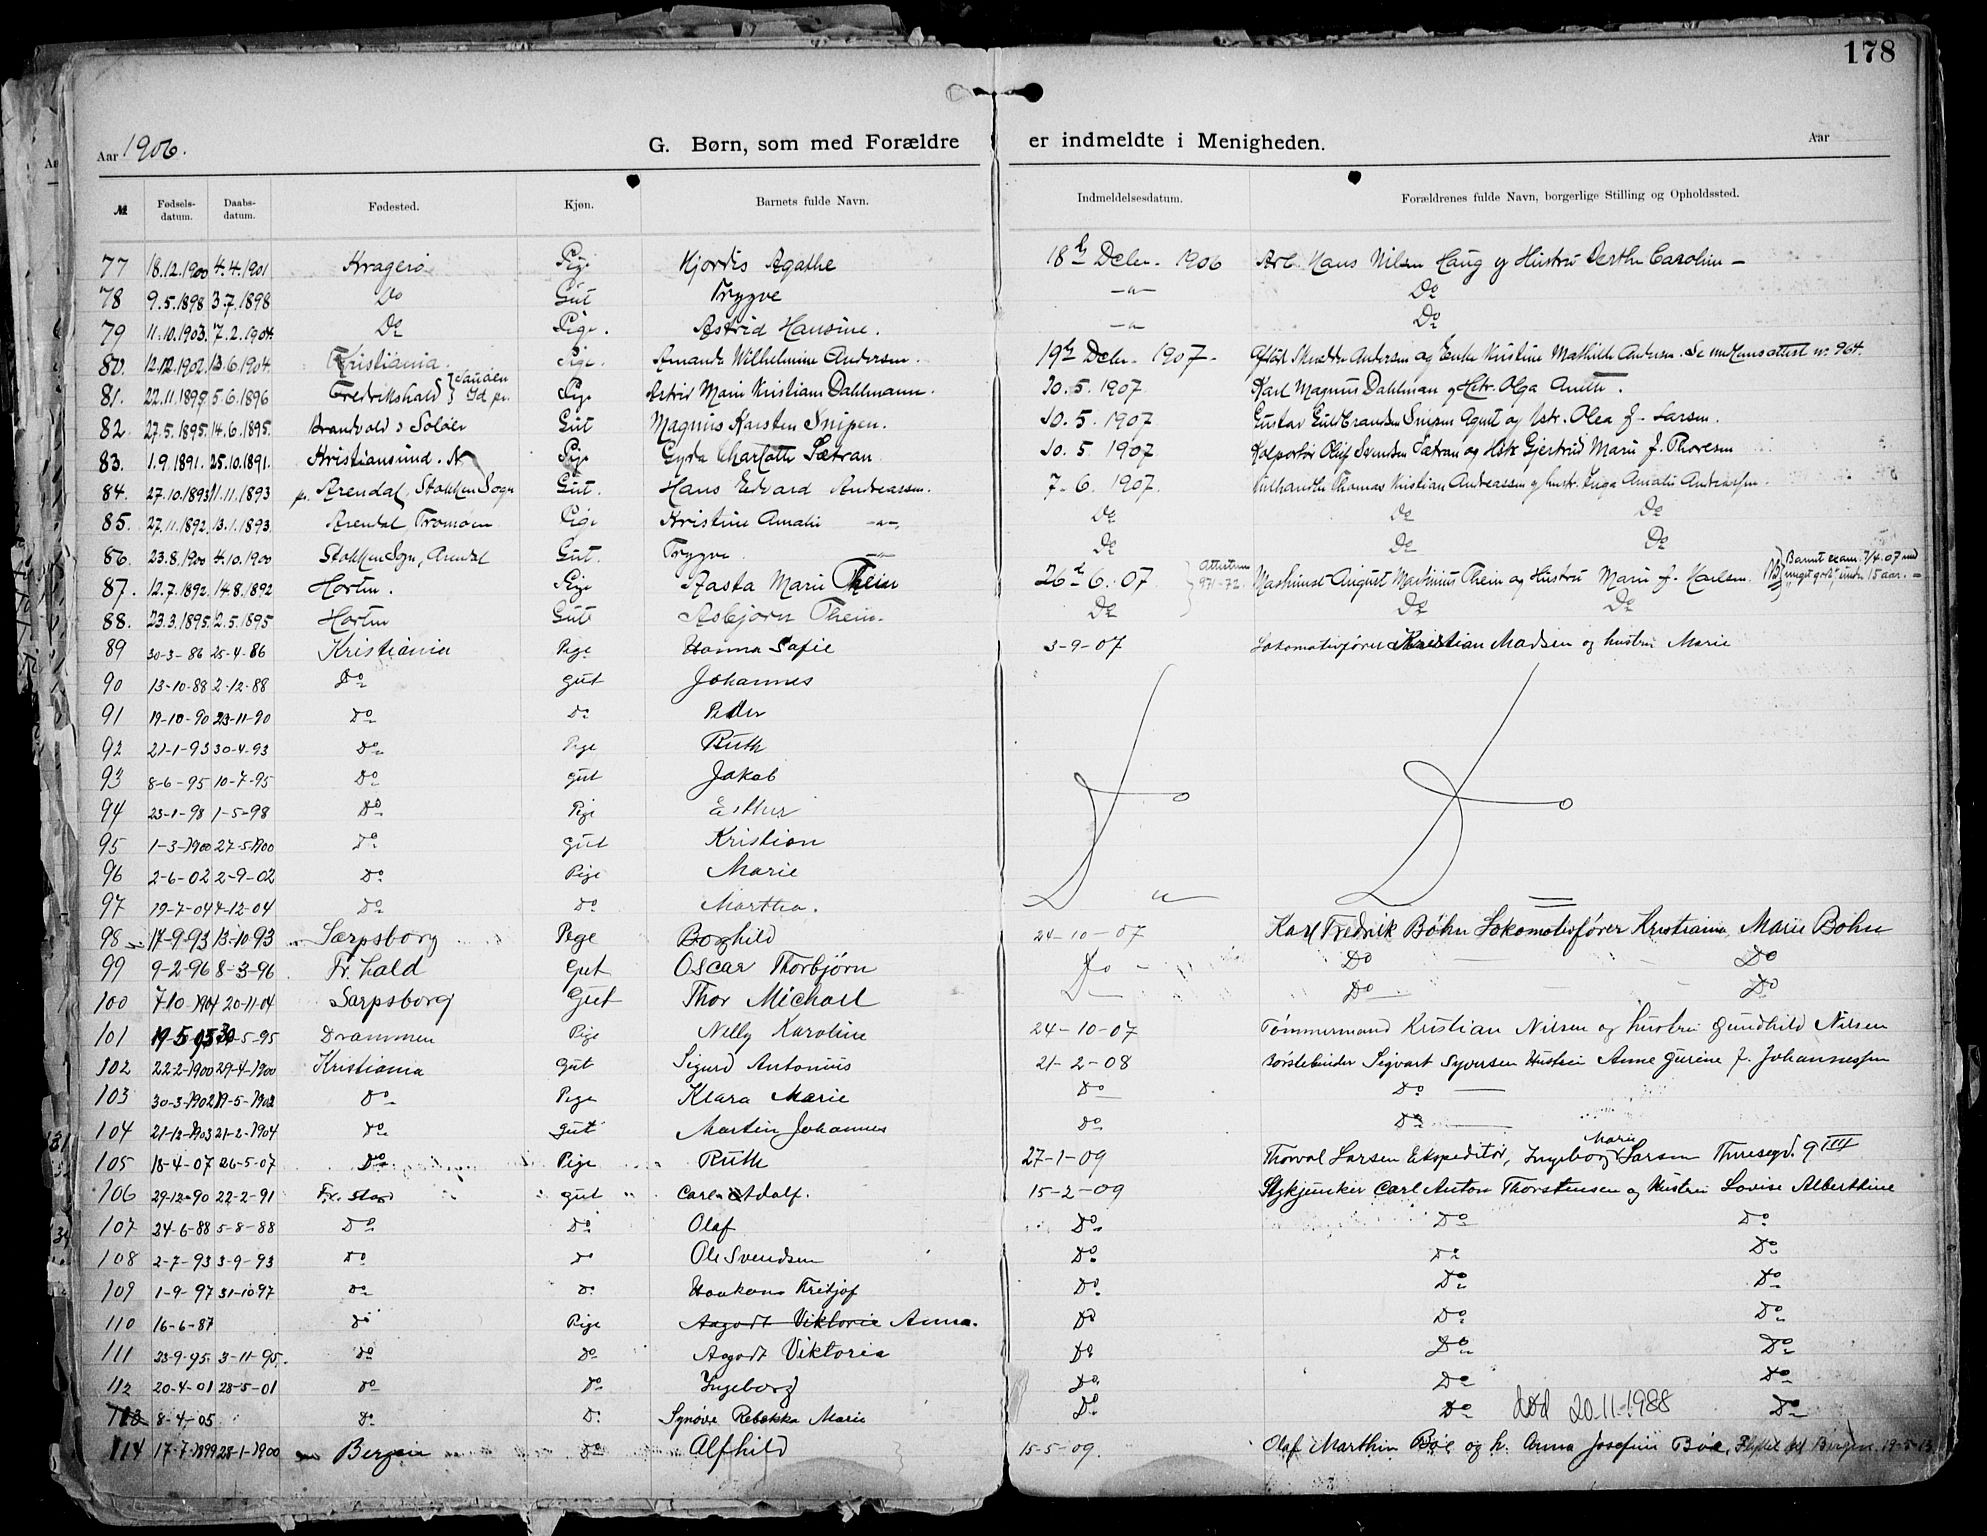 178
Aar 1906. G. Børn, som med Forældre er indmeldte i Menigheden. Aar
№ Fødselsdatum. Daabsdatum. Fødested. Kjøn. Barnets fulde Navn. Indmeldelsesdatum. Forældrenes fulde Navn, borgerlige Stilling og Opholdssted.
77 18.12.1900 4.4.1901 Kragerø Pige Hjordis Agathe 18de Debr. 1906 Arb. Hans Nilsen Haug og Hustru Berthe Caroline –
78 9.5.1898 3.7.1898 Do Gut Trygve –"– Do
79 11.10.1903. 7.2.1904. Do Pige. Astrid Hansine. –"– Do
80. 12.12.1902. 13.6.1904. Kristiania. Pige. Amanda Wilhelmine Andersen. 19de Debr. 1907. Afdød Skrædder Andersen og Enke Kristine Mathilde Andersen. Se indkans attest nr. 964.
81. 5.6.1896 Fredrikshald Id pr. Pige Astrid Marie Kristiane Dahlmann. 10.5.1907 Karl Magnus Dahlman og Hstr. Olga
82. 27.5.1895. 14.6.1895. Brandvold i Soløer Gut Magnus Karsten Snipen. 10.5.1907 Gustav Guldbrandsen Snipen Agent og Hstr. Olea f. Larsen.
83. 1.9.1891. 25.10.1891. Kristiansund. N Pige Gyda Charlotte Sætran 10.5 1907 Kolportør Oluf Svendsen Sætran og Hstr Gjertrud Marie f. Thoresen
84. 27.10.1893 11.11.1893 pr. Arendal, Stokken Sogn Gut. Hans Edvard Andreassen. 7.6.1907. Thomas Kristian Andreassen og hustr. Inga Amalie Andreassen.
85. 27.11.1892. 13.1.1893. Arendal Tromøen Pige Kristine Amalie –"–. Do Do Do
86. 23.8.1900 4.10.1900 Stokken Sogn, Arendal Gut. Trygve –"– Do Do Do
87. 12.7.1892. 14.8.1892 Horten. Pige Aasta Marie Thein 26de 6. 07 971-72. Maskinist August Mathinius Thein og Hustru Marie f. Karlsen. NB Barnet exam. 7/4.07 med "meget godt", under 15 aar. –
88. 23.3.1895. 12.5.1895 Horten Gut Asbjørn Thein. Do Do Do
89 30-3-86 25-4-86 Kristiania Pige Hanna Sofie 3-9-07 Lokomotivfører Kristian Madsen og hustru Marie
90 13-10-88 2-12-88 Do gut Johannes
91 19-10-90 23-11-90 Do Do Peder
92 21-1-93 30-4-93 Do Pige Ruth
93 8-6-95 10-7-95 Do gut Jakob
94 23-1-98 1-5-98 Do Pige Esther Do Do
95 1-3-1900 27-5-1900 Do gut Kristian
96 2-6-02 2-9-02 Do Pige Marie
97 19-7-04 4-12-04 Do Do Martha.
98 17-9-93 13-10-93 Sarpsborg Pige Borghild 24-10-07 Karl Fredrik Bøhn Lokomotivfører Kristiania, Marie Bohn
99 9-2-96 8-3-96 Fr. hald Gut Oscar Thorbjørn Do Do Do
100 7-10-1904 20-11-04 Sarpsborg Gut Thor Michael Do Do Do
101 19-5-95 30-5-95 Drammen Pige Nelly Karoline 24-10-07 Tømmermand Kristian Nilsen og hustru Gundhild Nilsen
102 22-2-1900 29-4-1900 Kristiania Gut Sigurd Antonius 21-2-08 Børstebinder Sigvart Syversen Hustru Anne Gurine f. Johannessen
103 30-3-1902 19-5-1902 Do Pige Klara Marie Do Do
104 21-12-1903 21-2-1904 Do gut Martin Johannes Do Do
105 18-4-07 26-5-07 Do Pige Ruth 27-1-09 Thorval Larsen Ekspeditør, Ingeborg Marie Larsen Thuresgd. 9 III
106 29-12-90 22-2-91 Fr. stad gut Carl Adolf. 15-2-09 Stykjunker Carl Anton Thorstensen og Hustru Lovise Alberthine
107 24-6-88 5-8-88 Do Do Olaf Do Do Do
108 2-7-93 3-9-93 Do Do Ole Svendsen Do Do Do
109 1-9-97 31-10-97 Do Do Haakon Fritjof Do Do Do
110 16-6-87 Do Pige Aagodt Viktoria Anna. Do Do Do
111 23-9-95. 3-11-95. Do Do Aagodt Viktoria Do Do Do
112 20-4-01 28-5-01 Do Do Ingeborg Do Do Do
113 8-4-05 Do Do Synøve Rebekka Marie Do Do død 20.11.1988 Do
114 17-7-1899 28-1-1900 Bergen Do Alfhild 15-5-09. Olaf Marthin Bøe og h. Anna Josefine Bøe, Flyttet til Bergen. 19-5-13